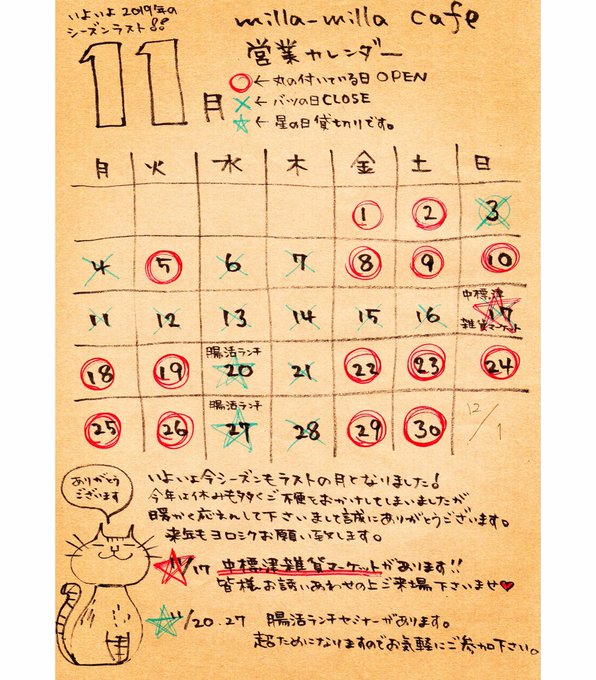 いよいよ2019年の
シーズンラスト!!
milla-milla cafe
11月
営業カレンダー
○←丸の付いている日OPEN
×←バツの日CLOSE
☆←星の日貸し切りです。
月 火 水 木 金 土 日
1 2 3
4 5 6 7 8 9 10
中標津
11 12 13 14 15 16 17
雑貨マーケット
腸活ランチ
18 19 20 21 22 23 24
腸活ランチ
25 26 27 28 29 30 12/1
ありがとう
ございます
いよいよ今シーズンもラストの月となりました!
今年は休みも多くご不便をおかけしてしまいましたが
暖かく応えんして下さいまして誠にありがとうございます。
来年もヨロシクお願い致します。
☆11/17 中標津雑貨マーケットがあります!!
皆様お誘いあわせの上ご来場下さいませ♥
☆11/20.27 腸活ランチセミナーがあります。
超ためになりますのでお気軽にご参加下さい。